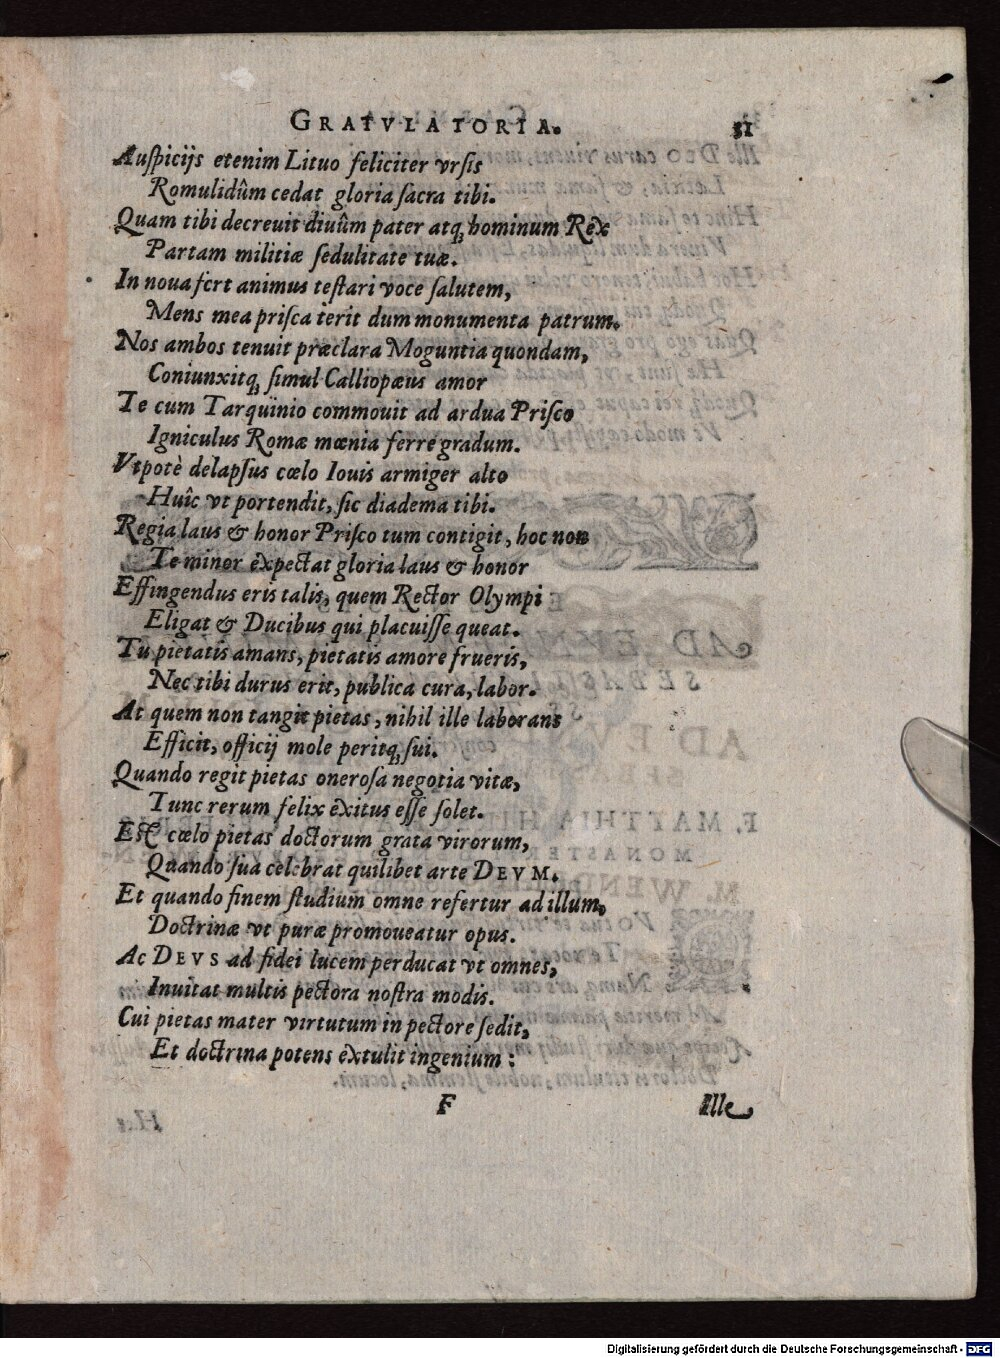 GRATVLATORIA. 31
Auſpicijs etenim Lituo feliciter vrſis
Romulidûm cedat gloria ſacra tibi.
Quam tibi decreuit diuûm pater atq́; hominum Rex
Partam militiæ ſedulitate tuæ.
In noua fert animus teſtari voce ſalutem,
Mens mea priſca terit dum monumenta patrum.
Nos ambos tenuit præclara Moguntia quondam,
Coniunxitq́; ſimul Calliopæus amor
Te cum Tarquinio commouit ad ardua Priſco
Igniculus Romæ mœnia ferre gradum.
Vtpotè delapſus cœlo Iouis armiger alto
Huîc vt portendit, ſic diadema tibi.
Regia laus & honor Priſco tum contigit, hoc non
Te minor expectat gloria laus & honor
Effingendus eris talis, quem Rector Olympi
Eligat & Ducibus qui placuiſſe queat.
Tu pietatis amans, pietatis amore frueris,
Nec tibi durus erit, publica cura, labor.
At quem non tangit pietas, nihil ille laborans
Efficit, officij mole peritq́; ſui.
Quando regit pietas oneroſa negotia vitæ,
Tunc rerum felix exitus eſſe ſolet.
Eſt cœlo pietas doctorum grata virorum,
Quando ſua celebrat quilibet arte DEVM.
Et quando finem ſtudium omne refertur ad illum,
Doctrinæ vt puræ promoueatur opus.
Ac DEVS ad fidei lucem perducat vt omnes,
Inuitat multis pectora noſtra modis.
Cui pietas mater virtutum in pectore ſedit,
Et doctrina potens extulit ingenium:
F Ille
Digitalisierung gefördert durch die Deutsche Forschungsgemeinschaft - DFG